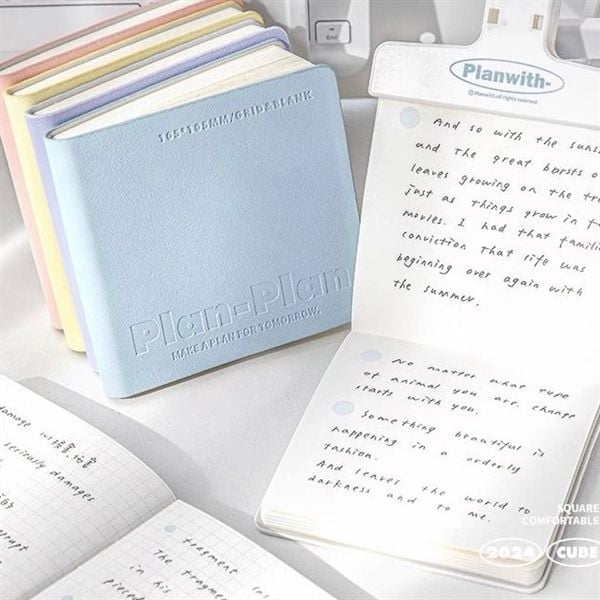 105*105MM/GRID&BLANK
Plan-Plan
MAKE A PLAN FOR TOMORROW.
End
Planwith-
© Planwith.all rights reserved.
And so with the suns
and the great bursts o
leaves growing on the tr
just as things grow in f
movies. I had that famili
conviction that life was
beginning over again with
the summer.
No matter what type
of animal you are, change
starts with you.
Something beautiful is
happening in a orderly
fashion.
And leaves the world to
darkness and to me.
damage
seriously damages
fragment
The fragmen
in his
pieced
SQUARE
COMFORTABLE
2024 CUBE